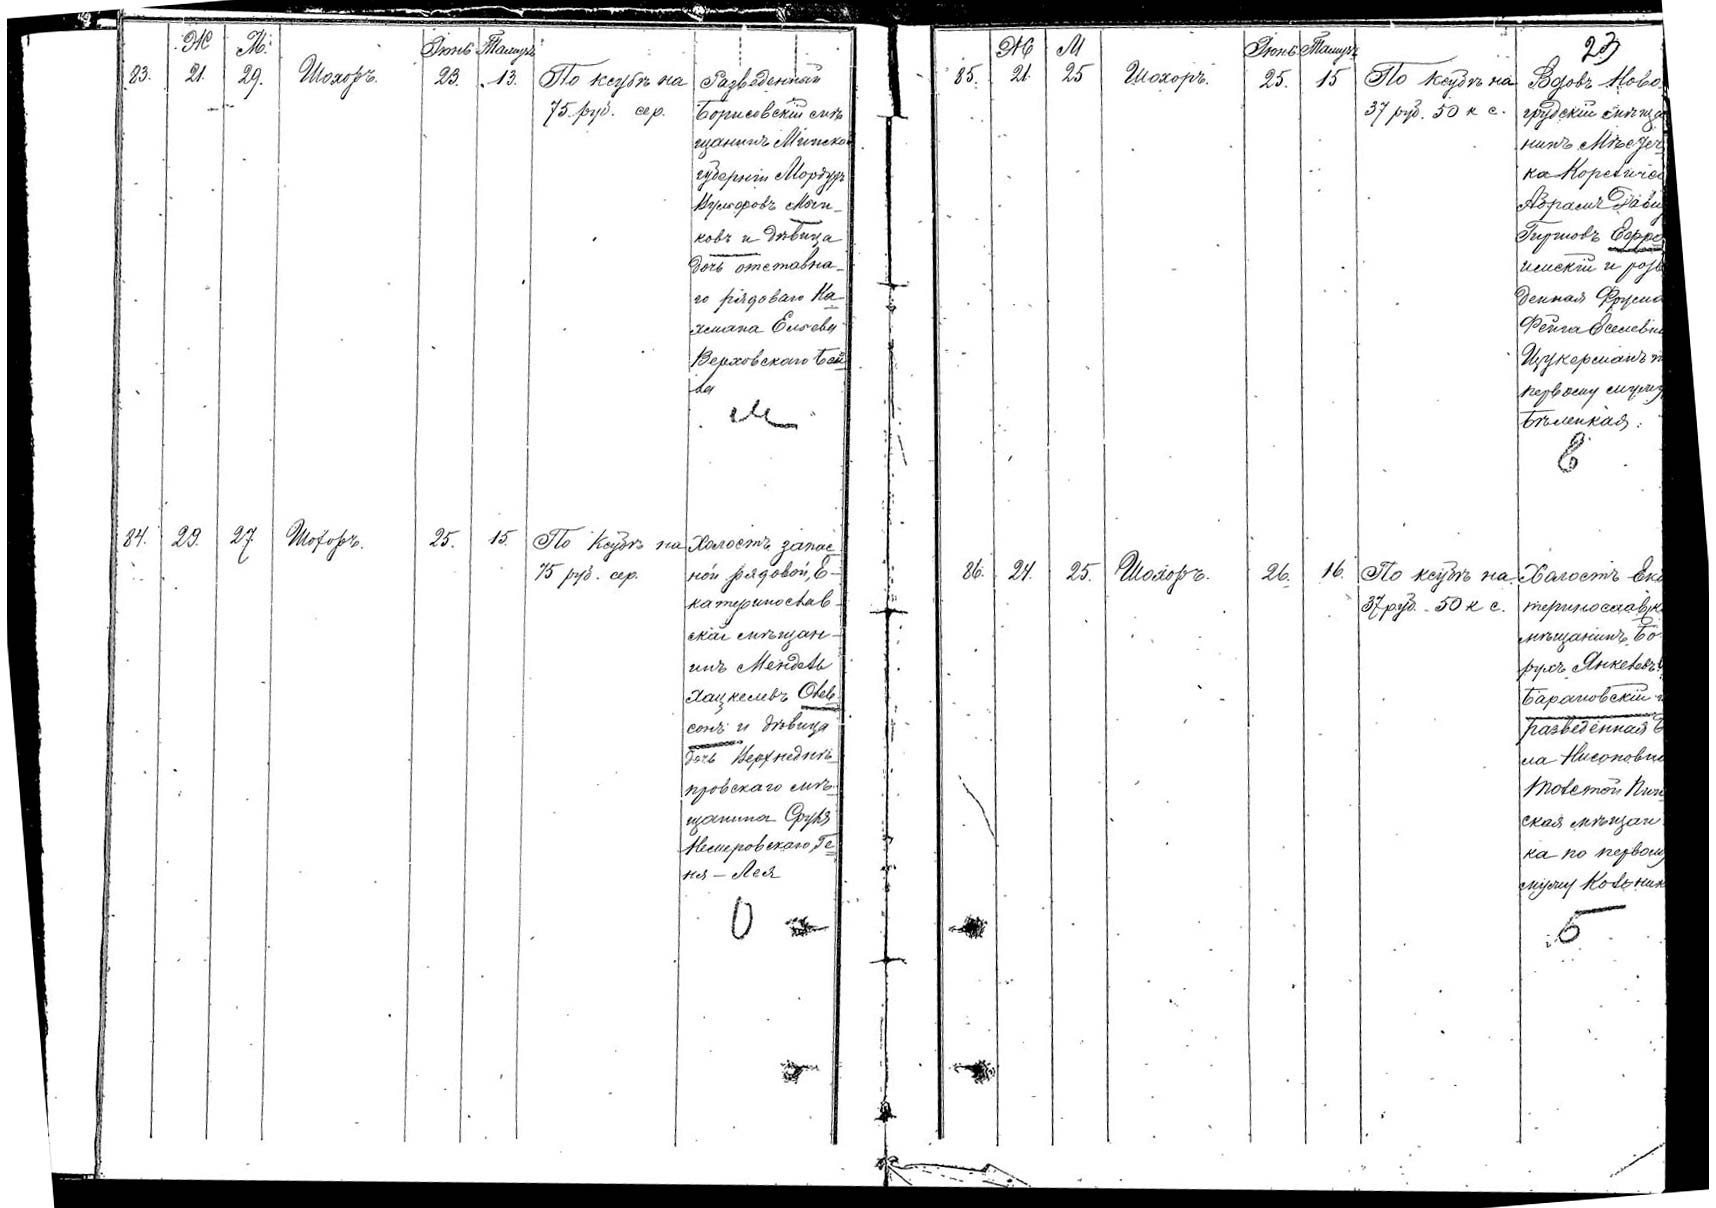 Ж М. Іюнь Тамузъ
83. 21. 29. Шохоръ. 23. 13. По ксубѣ на
75 руб. сер.
Разведенный
Борисовскій мѣ
щанинъ Минско
губерніи Мордухъ
ковъ и дѣвица
дочь отставна-
го рядоваго На-
хмана
Верховскаго Бей
ла
М
84. 29. 27 Шохоръ. 25. 15. По ксубѣ на
75 руб. сер.
Холостъ запас
ной рядовой, Е-
катеринослав-
скій мѣщан-
инъ Мендель
Хацкелевъ Овев
сонъ и дѣвица
дочь Верхнеднѣ
провскаго мѣ-
щанина Сруля
Немеровскаго, Ге
ня - Лея
О
Ж М Іюнь Тамузъ 23
85. 21. 25 Шохоръ. 25. 15 По ксубѣ на
37 руб. 50 к с.
Вдовъ Ново
грудскій мѣща
нинъ Мѣстеч
ка Кореличи
Абрамъ Дави
Гиршовъ Ефро
имскій и разв
денная Фрума
Фейга
Цукерманъ п
первому мужу
Бѣлецкая.
Е
86. 24. 25. Шохоръ. 26. 16. По ксубѣ на
37 руб. 50 к с.
Холостъ Ека
теринославск
мѣщанинъ Бо
рухъ Янкелевъ
Барановскій и
разведенная Б
ла Нисоновна
Толстой Пин
ская мѣщан
ка по первому
мужу
Б